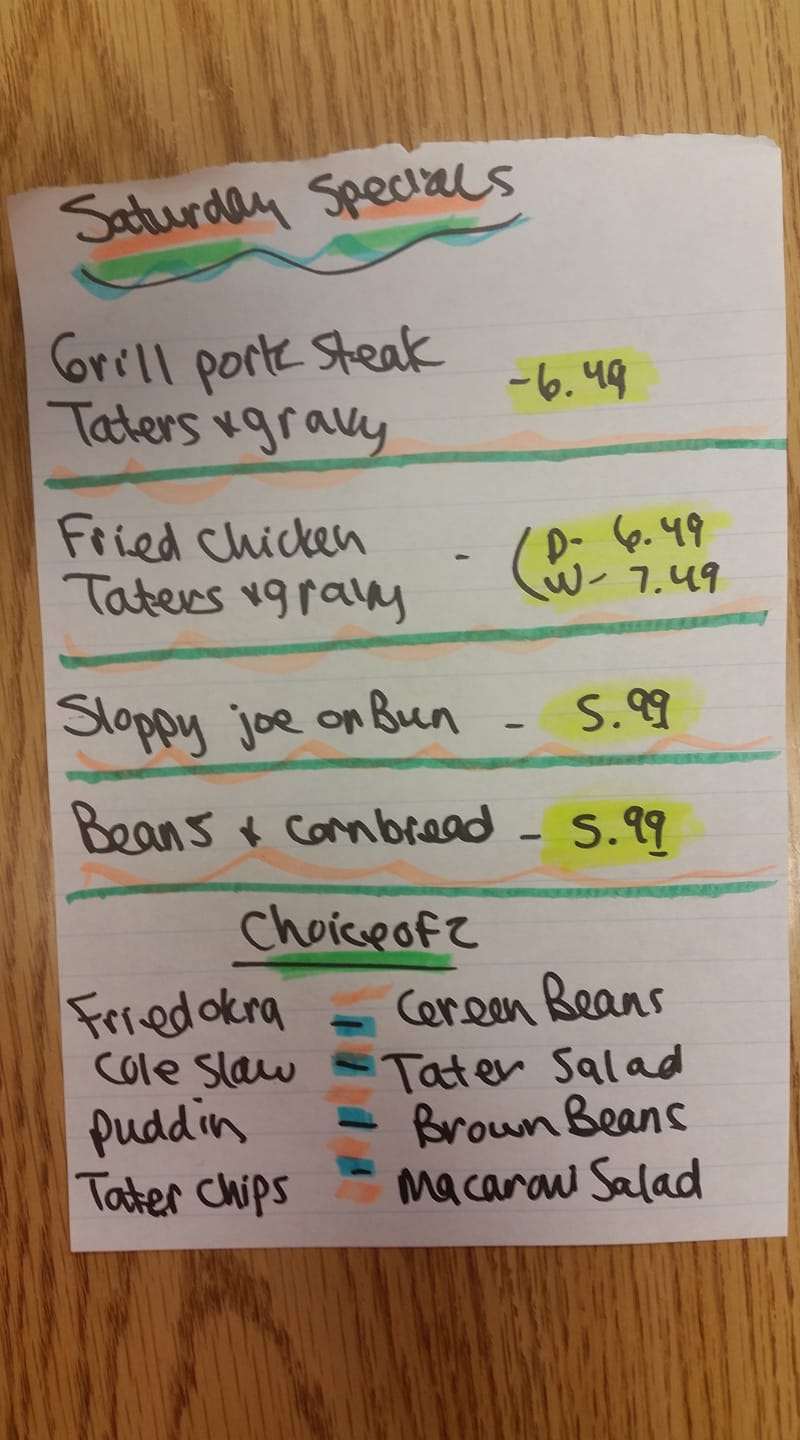 Saturday Specials
Grill pork Steak
Taters & gravy
- 6.49
Fried Chicken
Taters & gravy
- ( D- 6.49
W- 7.49
Sloppy joe on Bun - 5.99
Beans & cornbread - 5.99
Choice of 2
Fried okra - Green Beans
Cole Slaw - Tater Salad
puddin - Brown Beans
Tater chips - Macaroni Salad